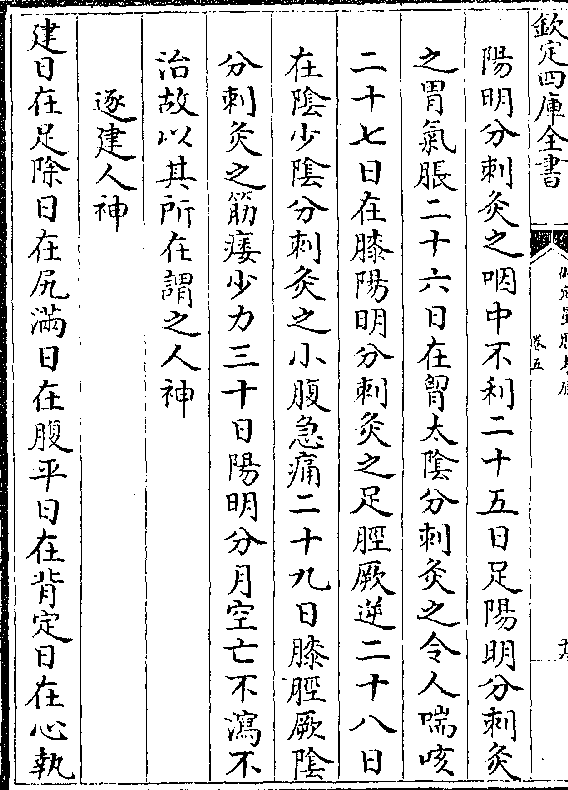 欽定四庫全書
卷五
陽明分刺灸之咽中不利二十五日足陽明分刺灸
之胃氣脹二十六日在胷太陰分刺灸之令人喘咳
二十七日在膝陽明分刺灸之足脛厥逆二十八日
在陰少陰分刺灸之小腹急痛二十九日膝脛厥陰
分刺灸之筋痿少力三十日陽明分月空亡不瀉不
治故以其所在謂之人神
逐建人神
建日在足除日在尻滿日在腹平日在背定日在心執